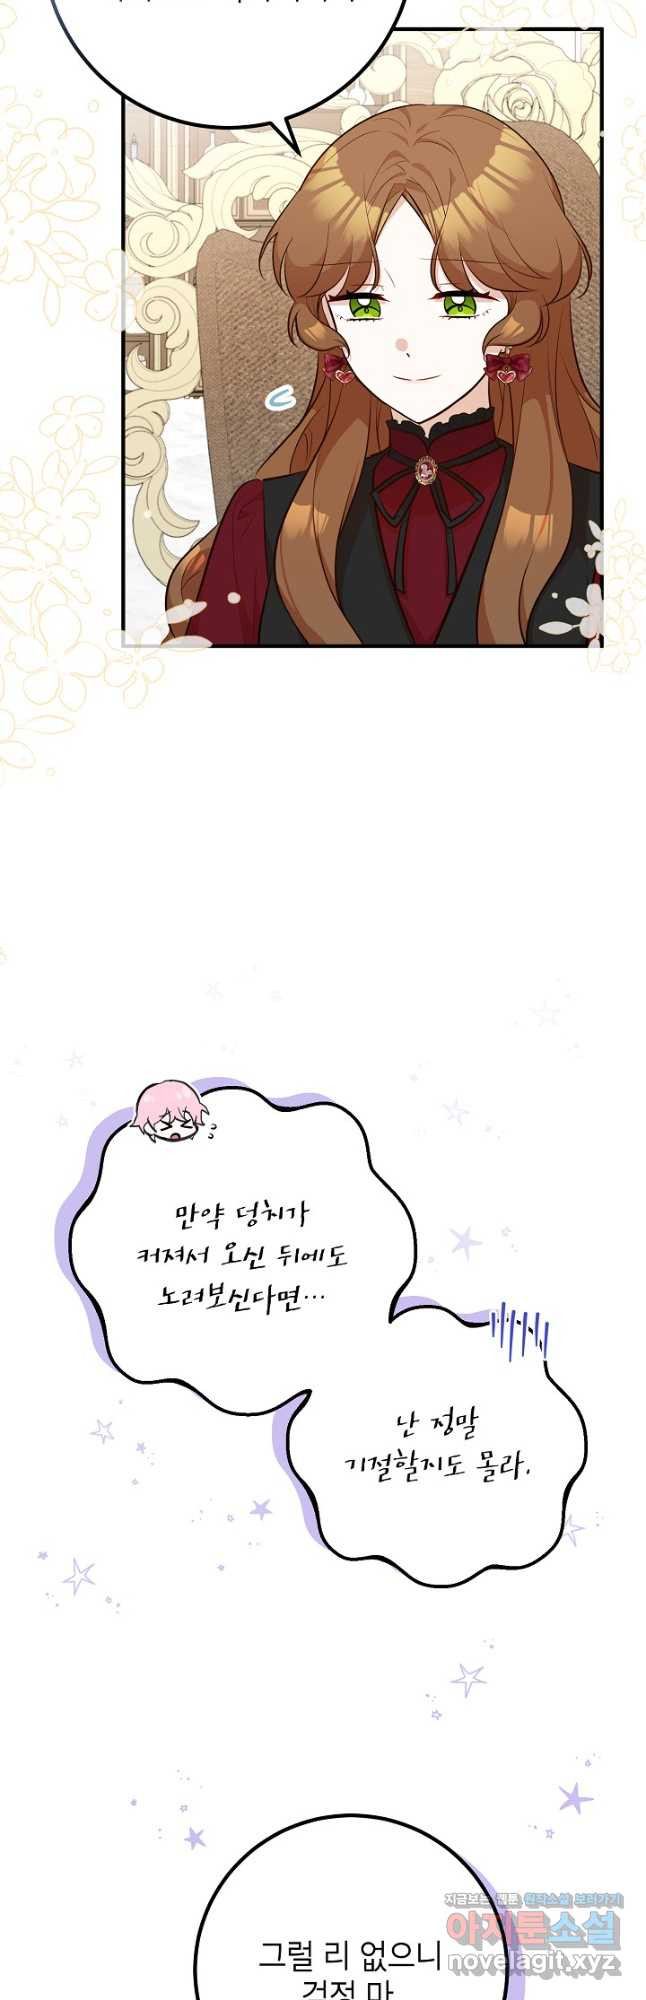 만약 덩치가
커져서 오신 뒤에도
노려보신다면…
난 정말
기절할지도 몰라.
그럴 리 없으니
걱정 마
지금보는 웹툰 원작소설 보러가기
아지툰소설
novelagit.xyz